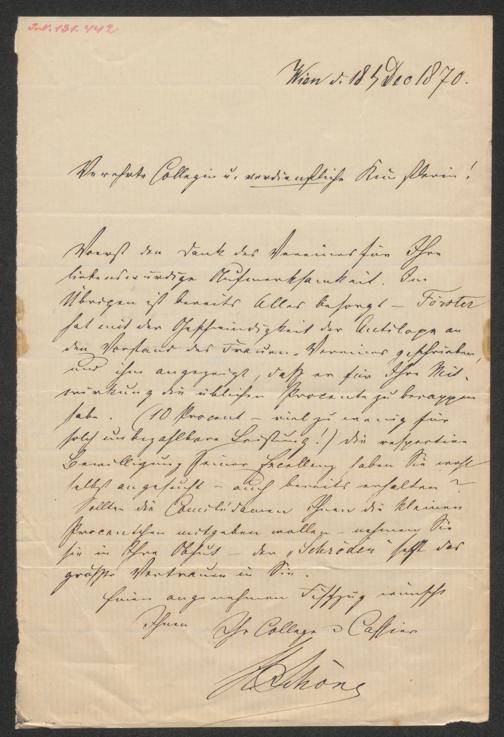 Inv. 131.442
Wien d. 18 Dec 1870.
Verehrte Collegin u. verdienstliche Künstlerin!
Vorerst den Dank des Vereines für Ihre
liebenswürdige Aufmerksamkeit. Im
Übrigen ist bereits Alles besorgt – Förster
hat mit der Geschwindigkeit der Antilope an
den Vorstand des Frauen-Vereines geschrieben
und ihm angezeigt, daß er für Ihre Mit-
wirkung die üblichen Procente zu berappen
habe. (10 Procent – viel zu wenig für
solch unbezahlbare Leistung!) Die respective
Bewilligung Seiner Excellenz haben Sie wohl
selbst angesucht – auch bereits erhalten?
Sollten die Comitédamen Ihnen die kleinen
Procentchen mitgeben wollen – nehmen Sie
sie in Ihre Obhut – der "Schröder" hat das
größte Vertrauen in Sie.
Einen angenehmen Fischzug wünscht
Ihnen Ihr College u Cassier
Schöne